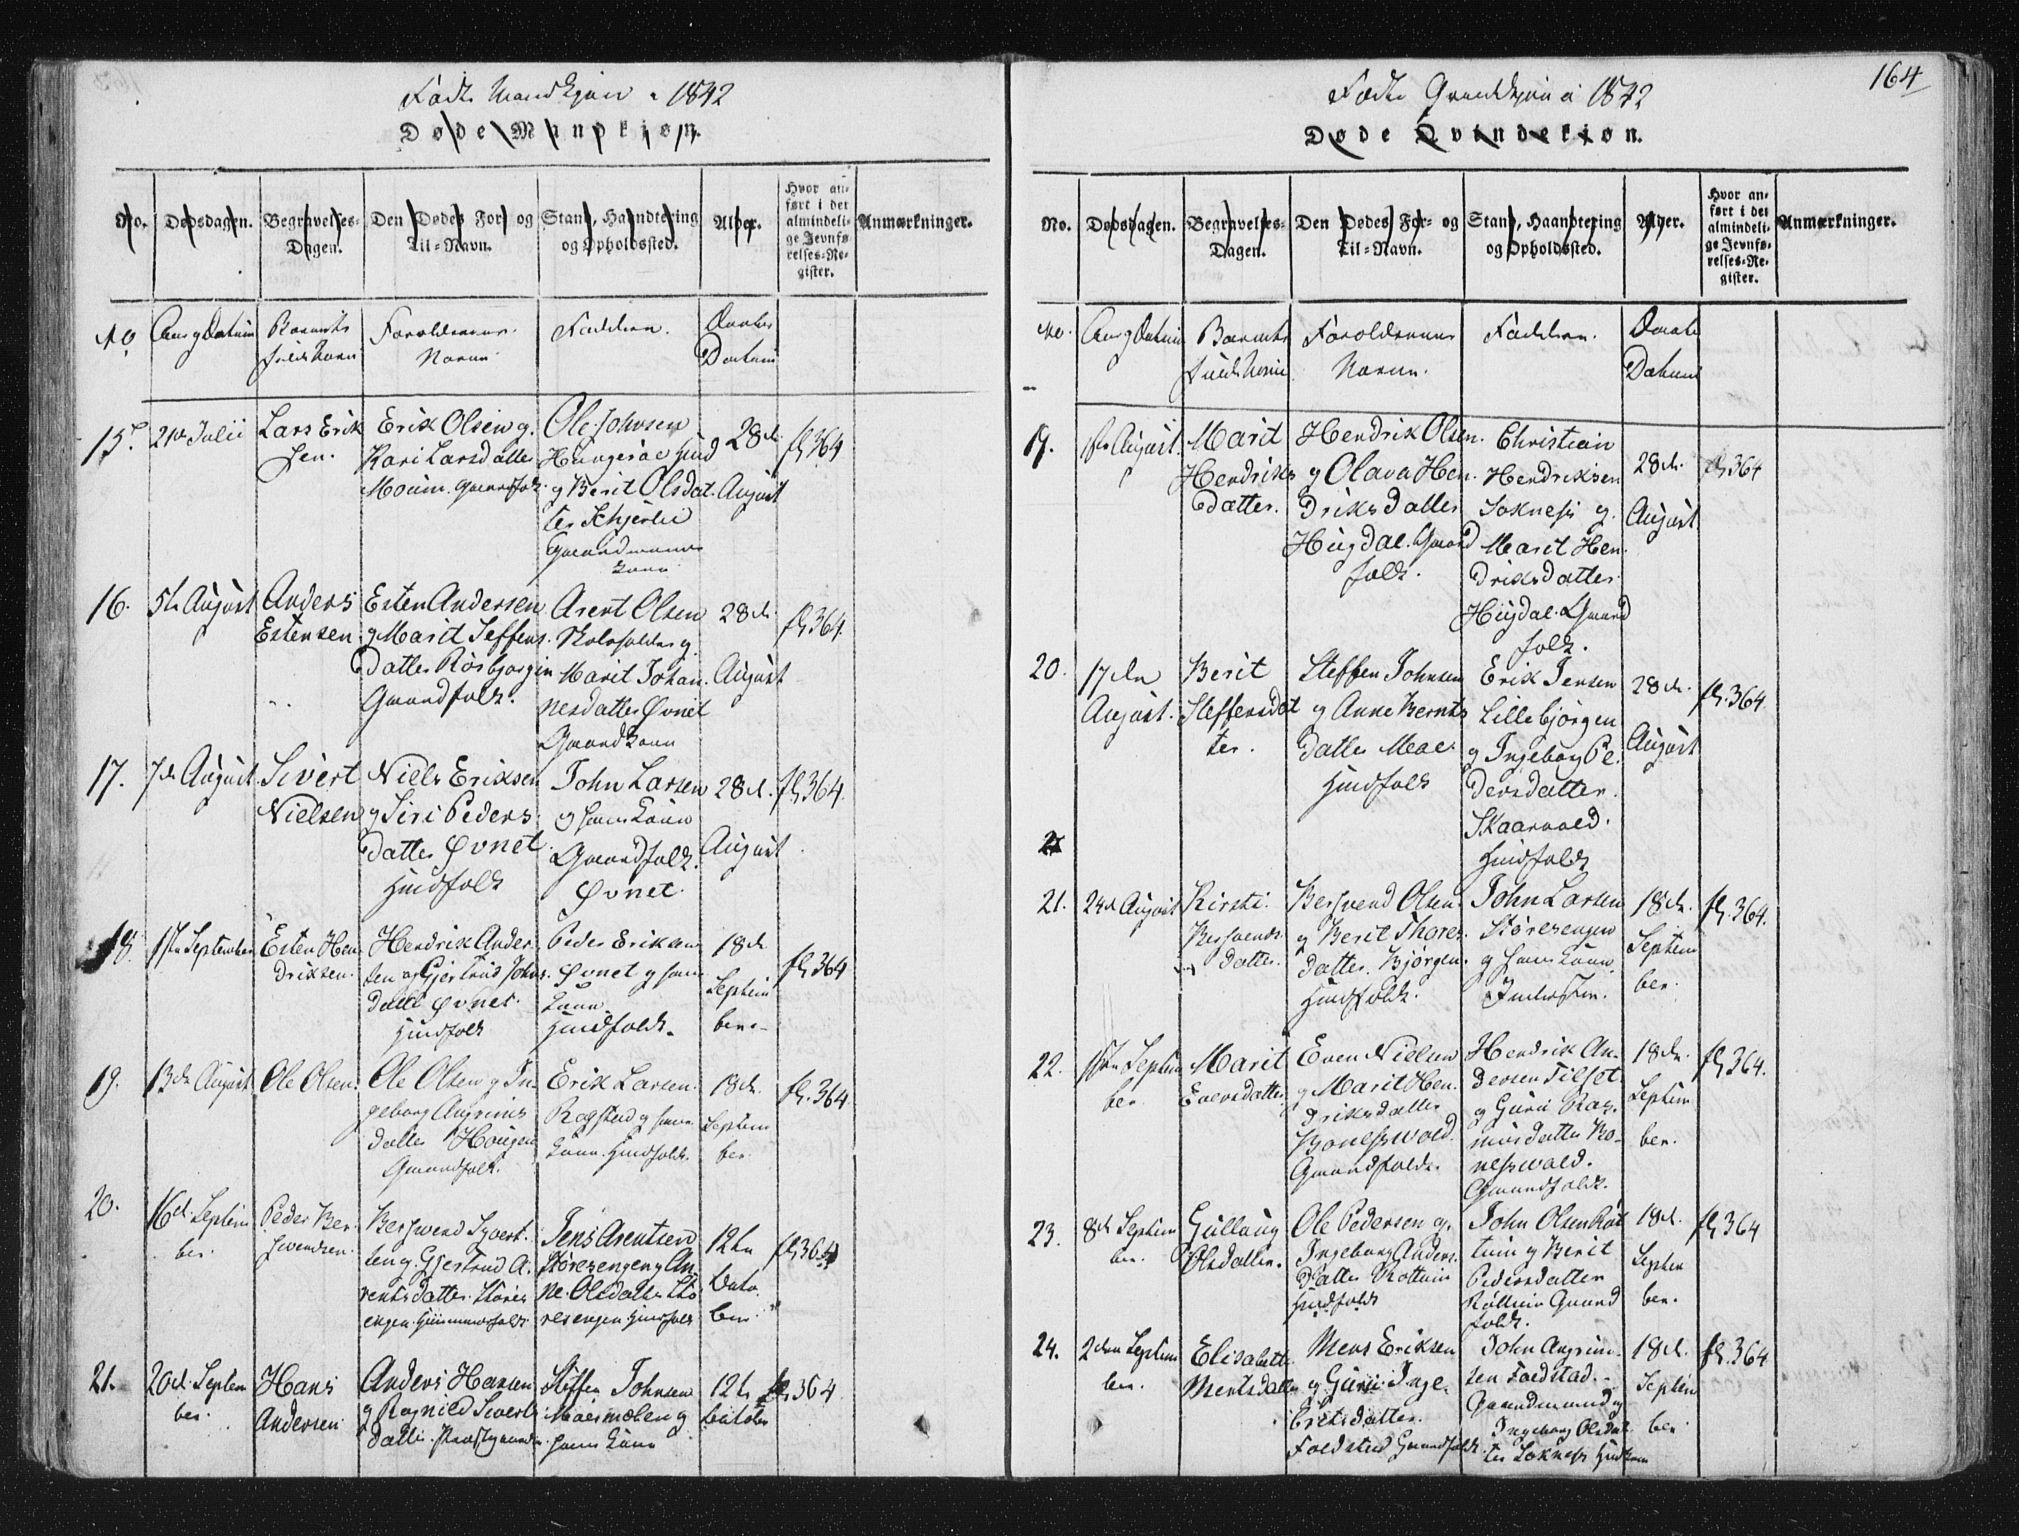 Fødte Mandkjøn 1842
Døde Mandkjøn.
No.
Dødsdagen.
Begravelses-
Dagen.
Den Dødes For- og
Til-Navn.
Stand, Haandtering
og Opholdssted.
Alder.
Hvor an-
ført i det
almindeli-
ge Jevnfø-
relses-Re-
gister.
Anmærkninger.
No
Aar og Datum
Barnets
fulde Navn
Forældrenes
Navne
Faddere.
Daabs
Datum
15.
21de Julii
Lars Erik
sen.
Erik Olsen og
Kari Larsdatter
Moum. Gaardfolk
Ole Johnsen
og Berit Olsdat
ter
Gaardmands
Kone
28de
August
fl 364
16.
5te August
Anders
Estensen
Esten Andersen
og Marit Steffens
datter Rosbjørgen
Gaardfolk.
Arent Olsen
og
Marit Johan
nesdatter Øvnet
Gaard Kone
28de
August
fl 364.
17.
7de August
Sivert
Nielsen
Niels Eriksen
og Siri Peders
datter Øvnet
Huusfolk
John Larsen
og hans Kone
Gaardfolk.
Øvnet.
28de
August
fl 364.
18.
1ste September
Esten Hen
driksen.
Hendrik Ander
sen og Gjertrud Johns
datter Øvnet.
Huusfolk
Peder Eriksen
Øvnet og hans
Kone
Huusfolk.
18de
Septem
ber.
fl 364
19.
13de August
Ole Olsen.
Ole Olsen og In
geborg Angrims
datter Hougen
Gaardfolk.
Erik Larsen
Rogstad og hans
Kone. Huusfolk.
18de
Septem
ber
fl. 364
20.
16de Septem
ber.
Peder Ber
svendsen.
Bersvend Syvert
sen og Gjertrud A
rentsdatter Støres
engen
Jens Arentsen
Støresengen og An
ne Olsdatter Stø
resengen Huusfolk
12te
Octo
ber.
fl 364
21.
20de Septem
ber.
Hans
Andersen
Anders Hansen
og Ragnild Siverts
datter
Steffen Johnsen
Moesmoelen og
hans Kone
12te
October
fl 364
164
Fødte Qvindkjøn 1842
Døde Qvindekjøn.
No.
Dødsdagen.
Begravelses-
Dagen.
Den Dødes For- og
Til-Navn.
Stand, Haandtering
og Opholdssted.
Alder.
Hvor an-
ført i det
almindeli-
ge Jevnfø-
relses-Re-
gister.
Anmærkninger.
No.
Aar og Datum
Barnets
fulde Navn
Forældrenes
Navne.
Faddere.
Daabs
Datum
19.
1ste August.
Marit
Hendriks
datter.
Hendrik Olsen
og Olava Hen
driksdatter
Hugdal. Gaard
folk.
Christian
Hendriksen
Soknes og
Marit Hen
driksdatter
Hugdal. Gaard
folk.
28de.
August
fl 364
20.
17de
August.
Berit
Steffensdat
ter.
Steffen Johnsen
og Anne Bernts
datter Moe
Huusfolk
Erik Jensen
Lillebjørgen
og Ingeborg Pe
dersdatter
Skaarvold.
Huusfolk
28de.
August
fl. 364.
21
21.
24de August
Kirsti
Bersvends
datter.
Bersvend Olsen
og Berit Thores
datter. Bjørgen.
Huusfolk.
John Larsen
Støresengen
og hans Kone
18de.
Septem
ber.
fl. 364.
22.
1ste Septem
ber
Marit
Evensdatter
Even Nielsen
og Marit Hen
driksdatter
Bonesvold.
Gaardfolk.
Hendrik An
dersen Tilset
og Guru Ras
musdatter Bo
nesvold.
Gaardfolk.
18de.
Septem
ber.
fl 364.
23.
8de Septem
ber.
Gullaug
Olsdatter.
Ole Pedersen og
Ingeborg Anders
datter Rottum
Huusfolk
John Olsen Rot
tum og Berit
Pedersdatter
Rottum Gaard
folk.
18de.
Septem
ber.
fl 364
24.
2den Septem
ber.
Elisabeth
Mentsdatter
Ments Eriksen
og Guru Inge
britsdatter.
Foldstad Gaardfolk
John Angrim
sen Foldstad.
Gaardmand og
Ingeborg Olsdat
ter Soknes
18de.
Septem
ber
fl. 364